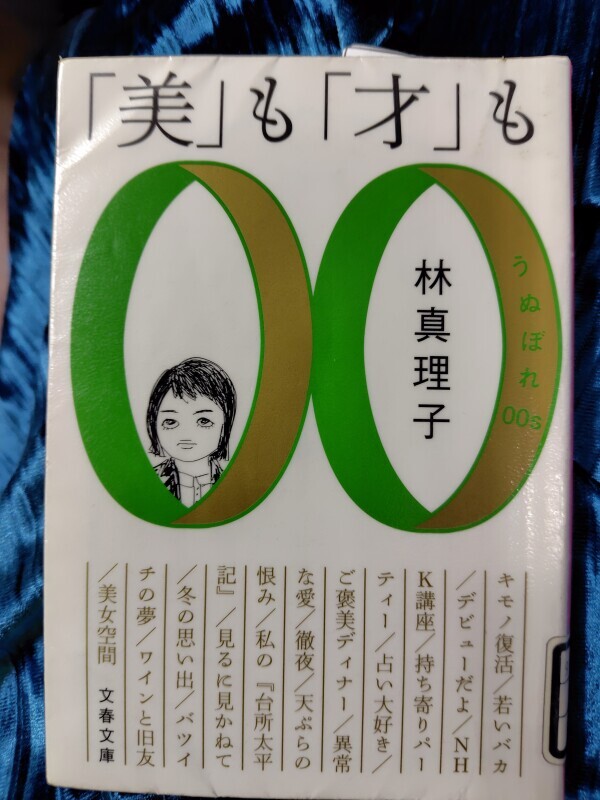 「美」も「才」も
林真理子
うぬぼれ00s
キモノ復活/若いバカ
/デビューだよ/NH
K講座/持ち寄りパー
ティー/占い大好き/
ご褒美ディナー/異常
な愛/徹夜/天ぷらの
恨み/私の『台所太平
記』/見るに見かねて
/冬の思い出/バツイ
チの夢/ワインと旧友
/美女空間
文春文庫